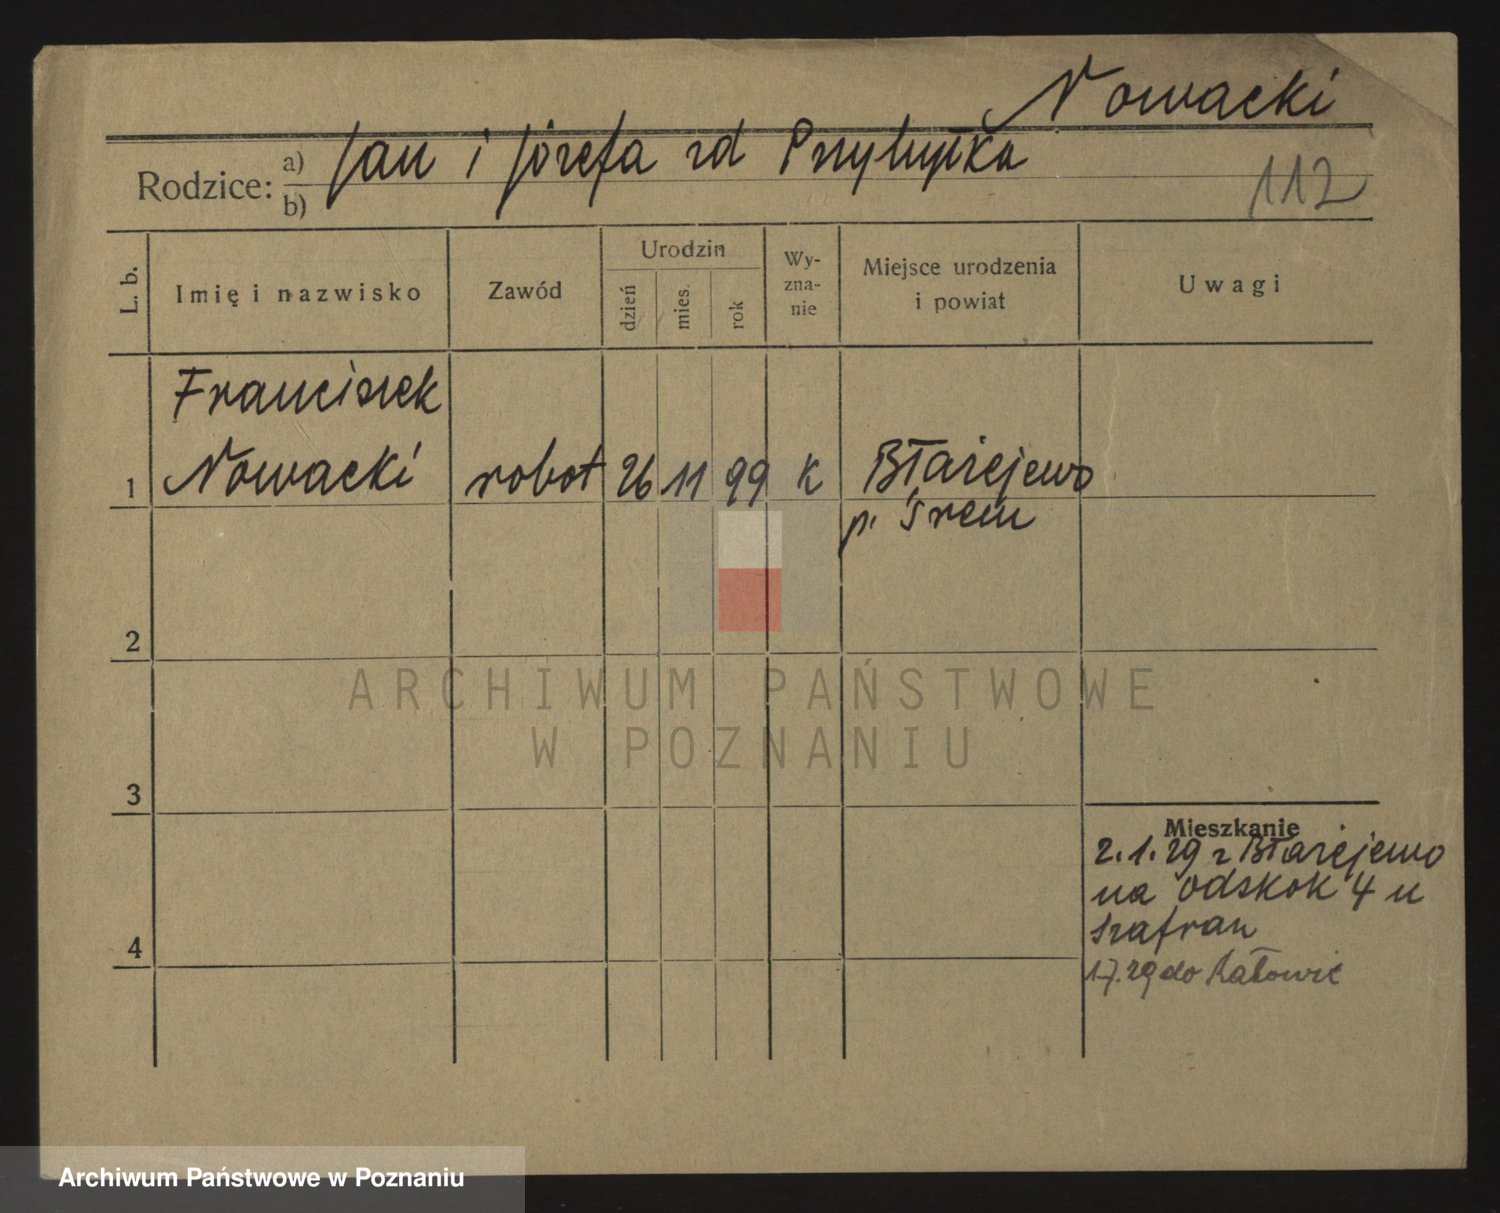 Nowacki
Rodzice: a) b) Jan i Józefa zd Przybylska
112
L. b.
Imię i nazwisko
Zawód
Urodzin
dzień
mies.
rok
Wy-
zna-
nie
Miejsce urodzenia
i powiat
Uwagi
Franciszek
1 Nowacki robot 26 11 99 k Błażejewo
p. Śrem
2
ARCHIWUM PAŃSTWOWE
W POZNANIU
3
Mieszkanie
2.1.29 z Błażejewo
na Odskok 4 u
Szafran
17.29 do Katowic
4
Archiwum Państwowe w Poznaniu